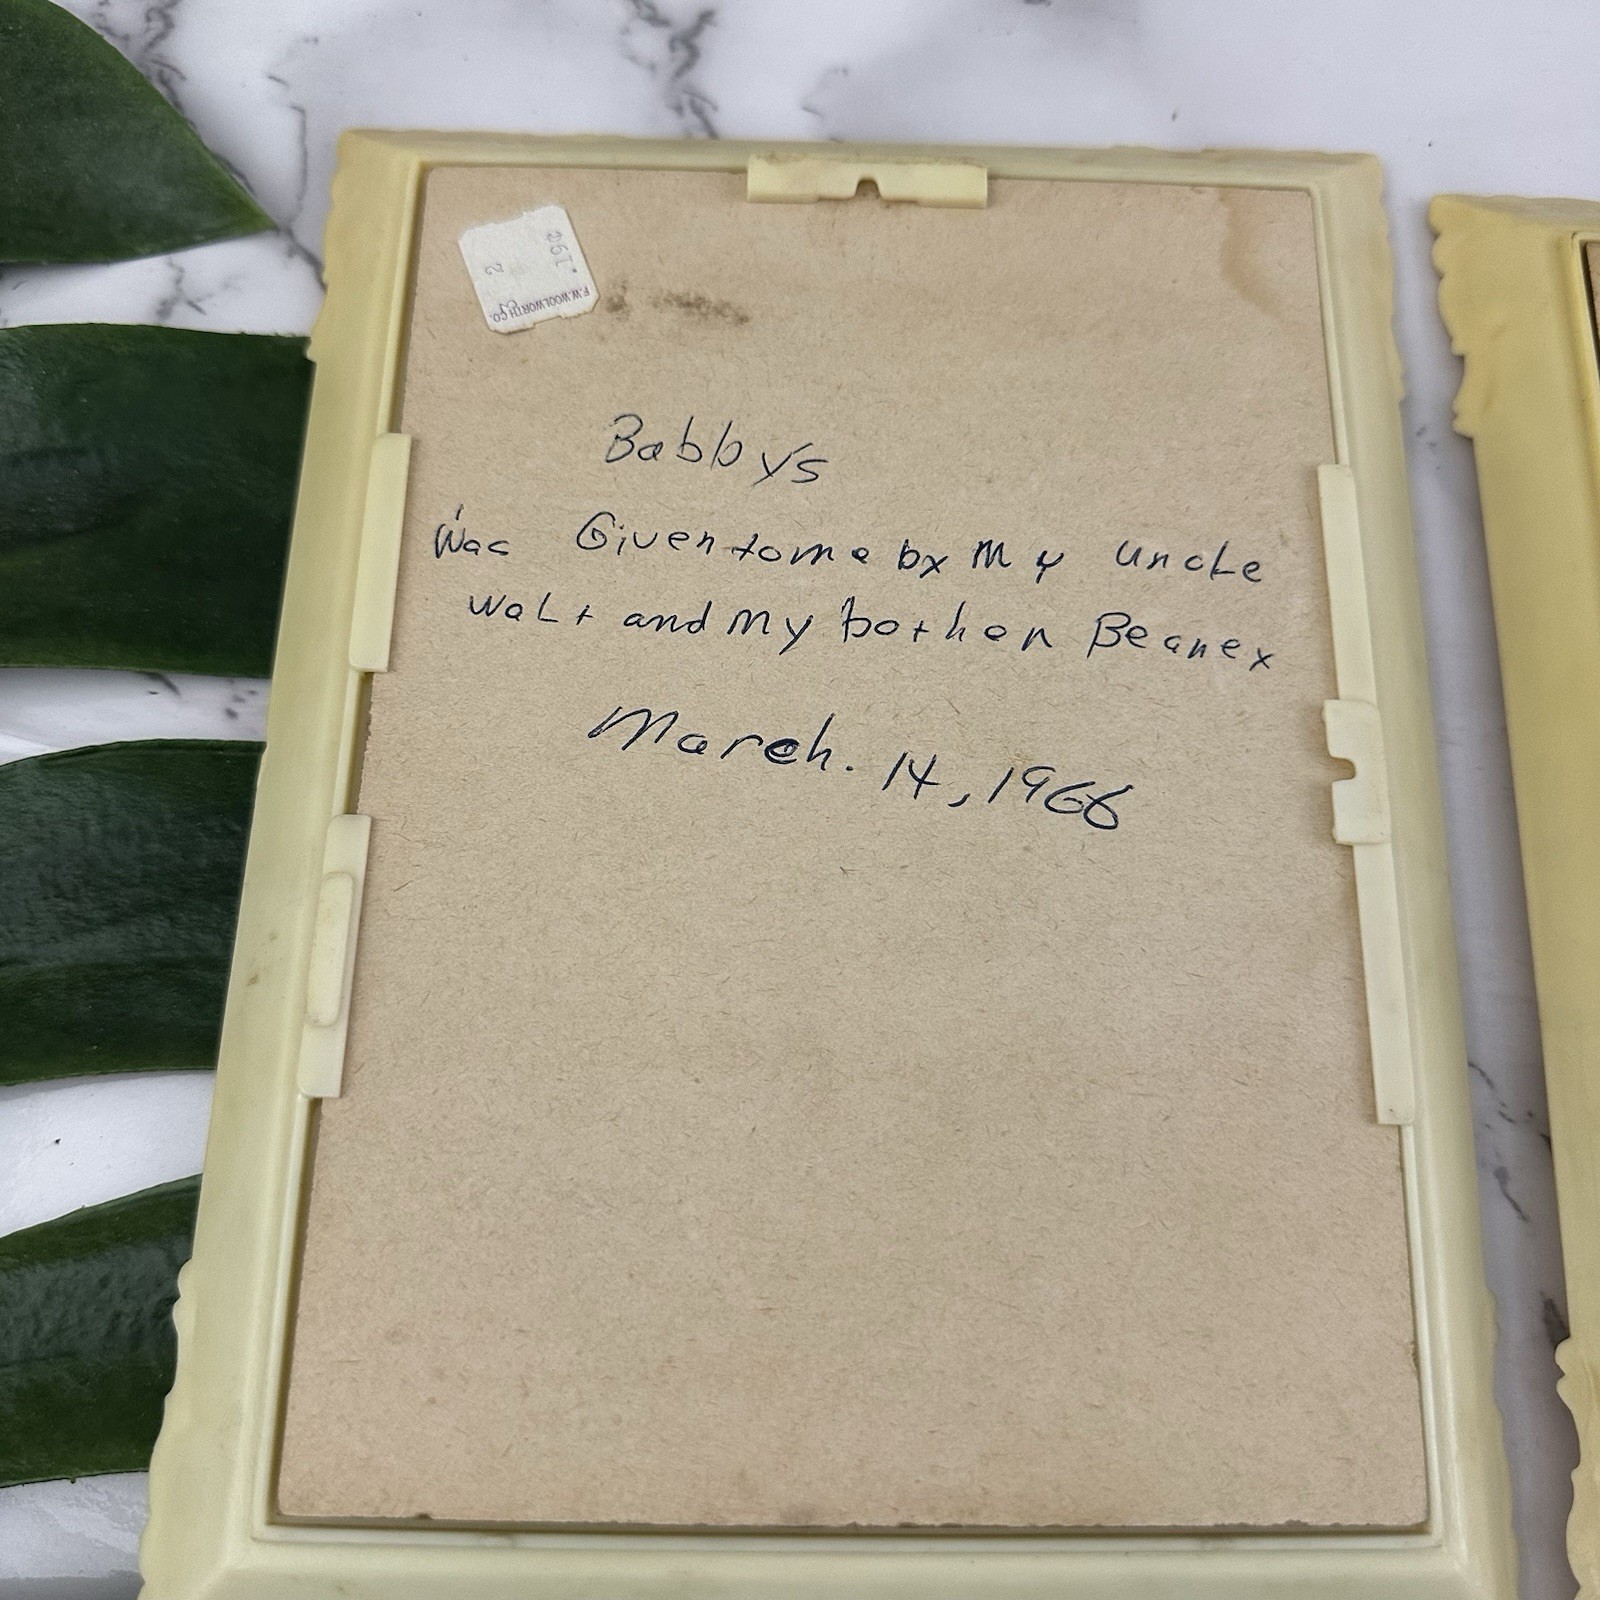 F.W. WOOLWORTH CO.
Babby's
Was Given to me by My Uncle
WaLt and My bother Beaney
March. 14, 1966